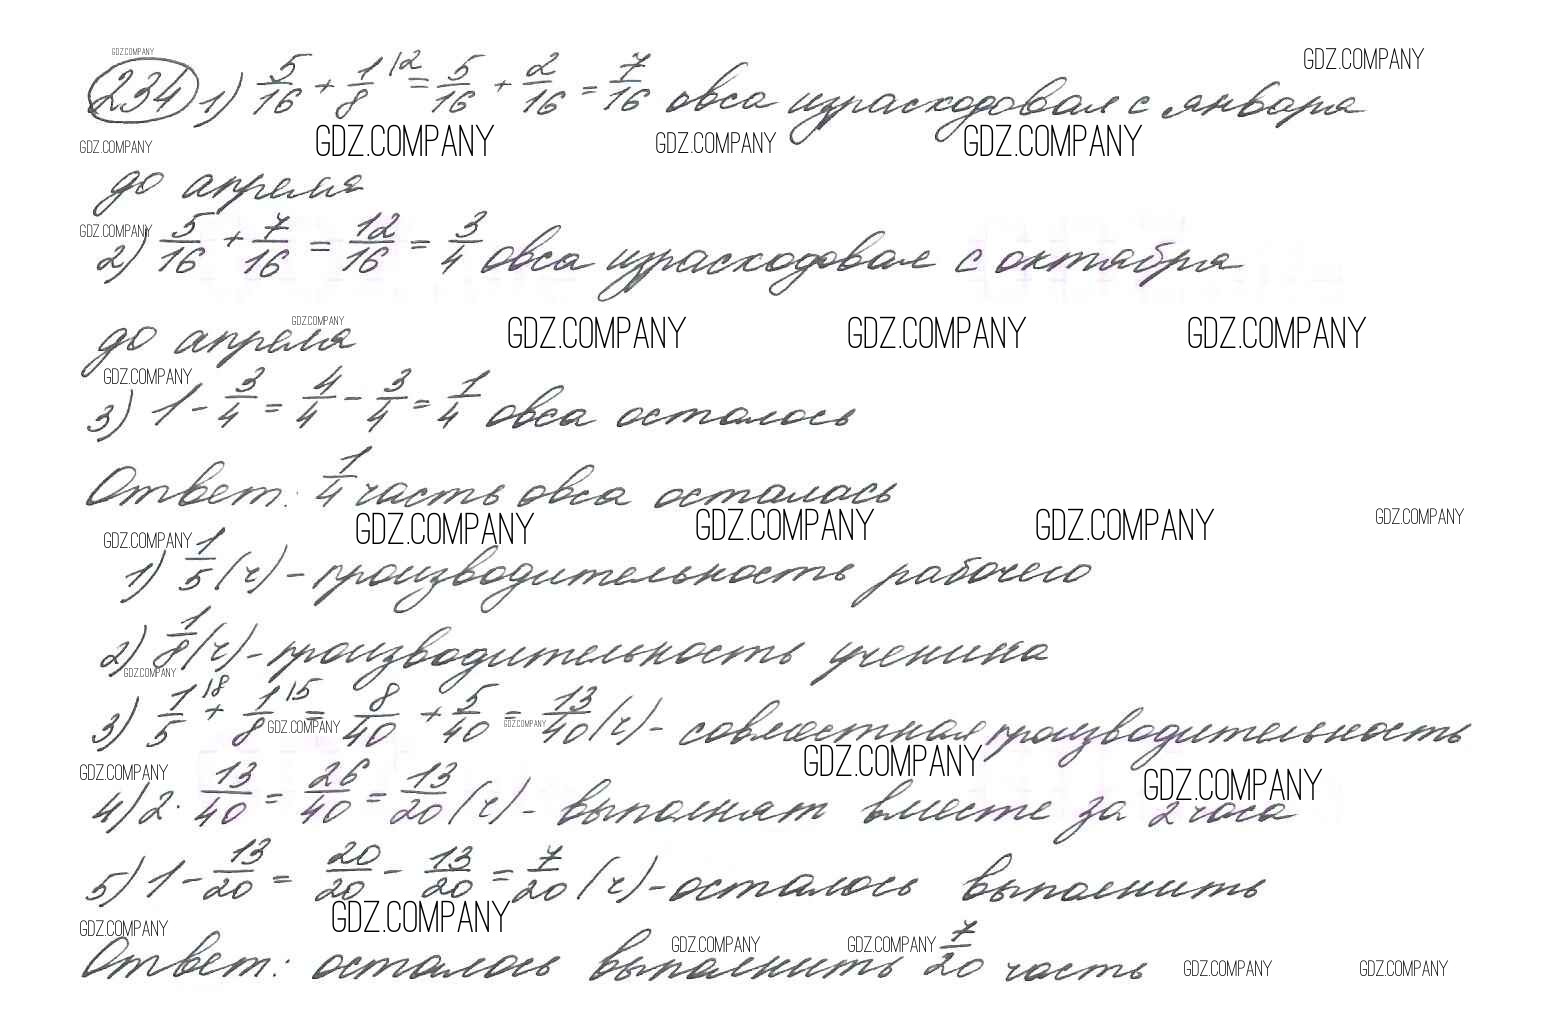 GDZ.COMPANY
GDZ.COMPANY
234 1) 5/16 + 1/8 |2 = 5/16 + 2/16 = 7/16 овса израсходовал с января
GDZ.COMPANY GDZ.COMPANY GDZ.COMPANY GDZ.COMPANY
до апреля
GDZ.COMPANY
2) 5/16 + 7/16 = 12/16 = 3/4 овса израсходовал с октября
GDZ.COMPANY GDZ.COMPANY GDZ.COMPANY GDZ.COMPANY
до апреля
GDZ.COMPANY
3) 1 - 3/4 = 4/4 - 3/4 = 1/4 овса осталось
Ответ: 1/4 часть овса осталась
GDZ.COMPANY GDZ.COMPANY GDZ.COMPANY GDZ.COMPANY GDZ.COMPANY
1) 1/5 (ч) - производительность рабочего
2) 1/8 (ч) - производительность ученика
GDZ.COMPANY
3) 1/5 |8 + 1/8 |5 = 8/40 + 5/40 = 13/40 (ч) - совместная производительность
GDZ.COMPANY GDZ.COMPANY
GDZ.COMPANY GDZ.COMPANY GDZ.COMPANY
4) 2 · 13/40 = 26/40 = 13/20 (ч) - выполнят вместе за 2 часа
5) 1 - 13/20 = 20/20 - 13/20 = 7/20 (ч) - осталось выполнить
GDZ.COMPANY GDZ.COMPANY GDZ.COMPANY GDZ.COMPANY
Ответ: осталось выполнить 7/20 часть
GDZ.COMPANY GDZ.COMPANY